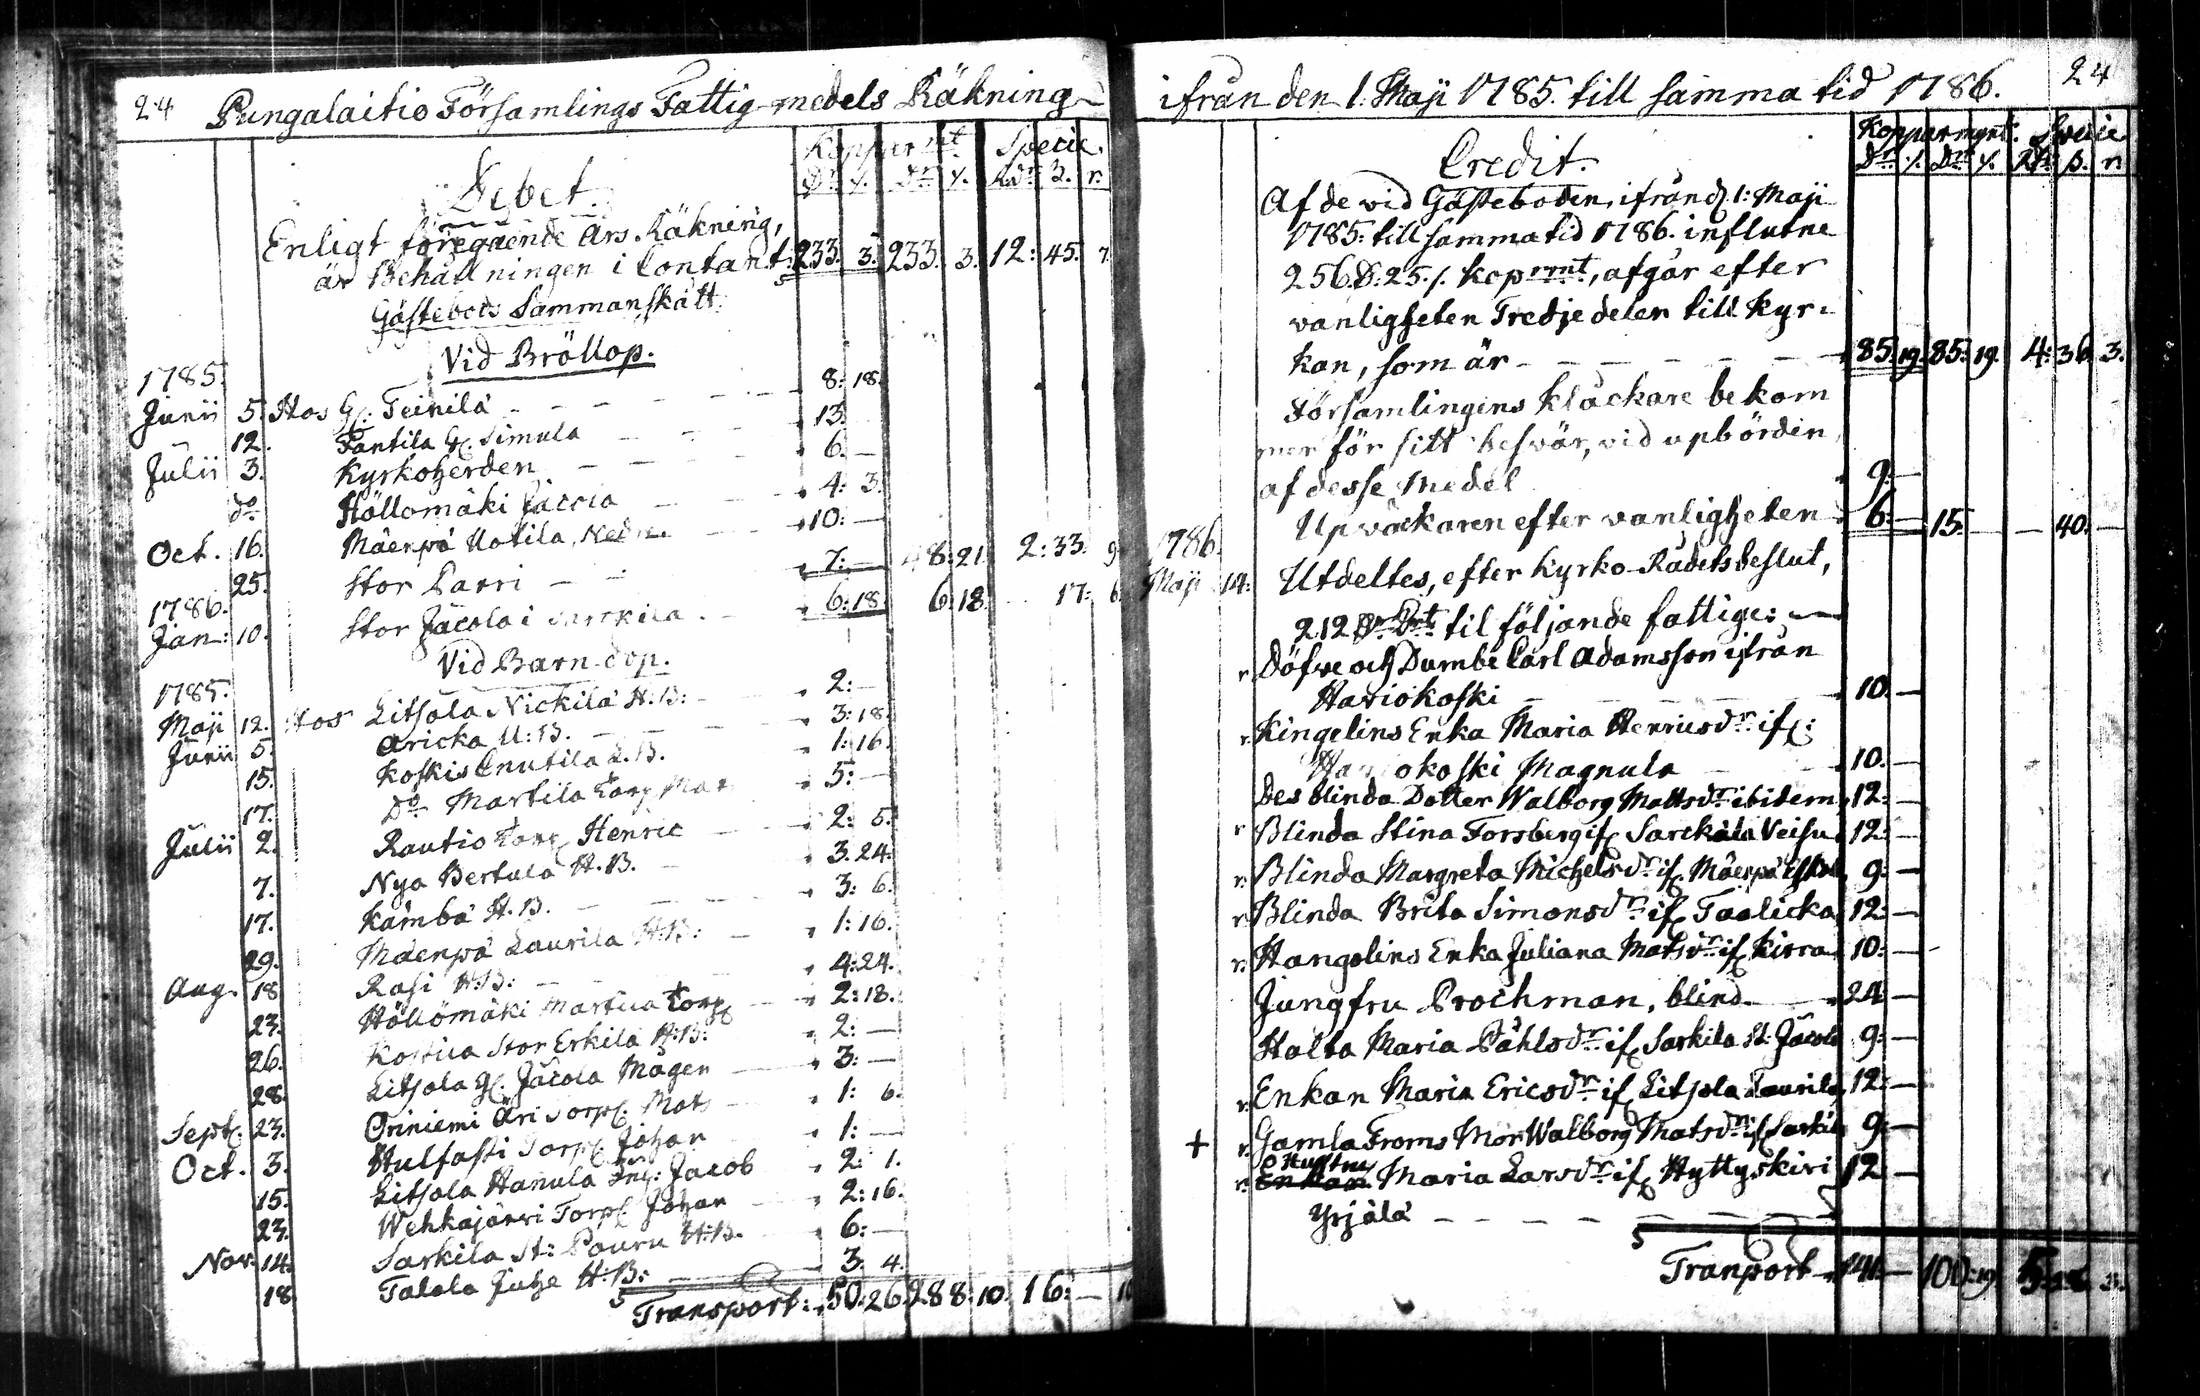 24 Pungalaitio Församlings Fattig-medels Räkning
Kopparmt Specie.
Dr. /. Dr. /. Rdr. ß. r.
Debet.
Enligt föregående Års Räkning,
är Behållningen i Contant: 233. 3. 233. 3. 12: 45. 7.
Gästebods Sammanskått.
Vid Bröllop.
1785.
Junii 5. Hos G: Teinilä 8: 18.
12. Pantila G. Simula 13.
Julii 3. Kyrkoherden 6. —
do Höllomäki Jacola 4: 3.
Oct. 16. Mäenpä Uotila, Nedre 10: —
25. Stor Parri 7: — 48: 21. 2: 33. 9
1786.
Jan: 10. Stor Jacola i Sarckila 6: 18. 6: 18. 17: 6.
Vid Barn-dop.
1785.
Maji 12. Hos Litsola Nickilä H:B: 2: —
Junii 5. Aricka U:B. 3: 18.
15. Koskis Cnutila L.B. 1: 16.
17. Do Martila Torp 5: —
Julii 2. Rautio Torp Henric 2: 5.
7. Nya Bertula H.B. 3. 24.
17. Kämbä H.B. 3: 6.
29. Mäenpä Laurila H:B: 1: 16.
Aug. 18 Rasi H:B: 4: 24.
23. Höllömäki Martila Torp 2: 18.
26. Stor Erkila H:B: 2: —
28. Litsola G. Jacola Mågen 3: —
Sept. 23. Oriniemi Äri Torp. Mats 1: 6.
Oct. 3. Hulfasti Torp. Johan 1: —
15. Litsola Hanula Inh: Jacob 2: 1.
23. Wehkajärvi Torp. Johan 2: 16.
Nov. 14. Sarkila St: Pouru H:B. 6: —
18. Talola Juhe H:B: 3. 4.
Transport: 50. 26. 288: 10. 16: — 10
ifrån den 1. Maji 1785. till samma tid 1786. 24
Kopparmynt. Specie
Dr. /. Dr. /. Rdr. ß. r.
Credit.
Af de vid Gästeboden, ifrån d. 1: Maji
1785: till samma tid 1786. influtne
256.D: 25./. Koprmt, afgår efter
vanligheten Tredje delen till Kyr-
kan, som är 85. 19. 85: 19. 4: 36. 3.
Församlingens Klåckare bekom
mer för sitt besvär, vid upbörden
af desse Medel 9: —
Upväckaren efter vanligheten 6: — 15: — — 40. —
1786.
Maji 14: Utdeltes, efter Kyrko-Rådets Beslut,
212 Dr til följande fattige:
r. Döfve och Dumbe Carl Adamsson ifrån
Hariokoski 10. —
r. Kingelins Enka Maria Henricsdr: if:
Hariokoski Magnula 10. —
Des blinda Dotter Walborg Mattsdr: ibidem 12: —
r Blinda Stina Forsberg if. Sarckala Veisu 12: —
r. Blinda Margreta Michelsdr: if. Mäenpä 9: —
r. Blinda Brita Simonsdr: if. Taalicka 12: —
r. Hangelins Enka Juliana Matsdr: if. Kirra 10: —
Jungfru Brochman, blind. 24 —
Halta Maria Påhlsdr: if. Sarkila St: Jacola 9: —
r. Enkan Maria Ericsdr: if. Litsola Laurila 12: —
+ r. Gamla Froms Mor Walborg Matsdr: if. Sarkila 9: —
Hustru
r. Enkan Maria Larsdr: if. Hyttyskivi 12 —
Yrjälä
Tranport 141 — 100: 19. 5: 3.